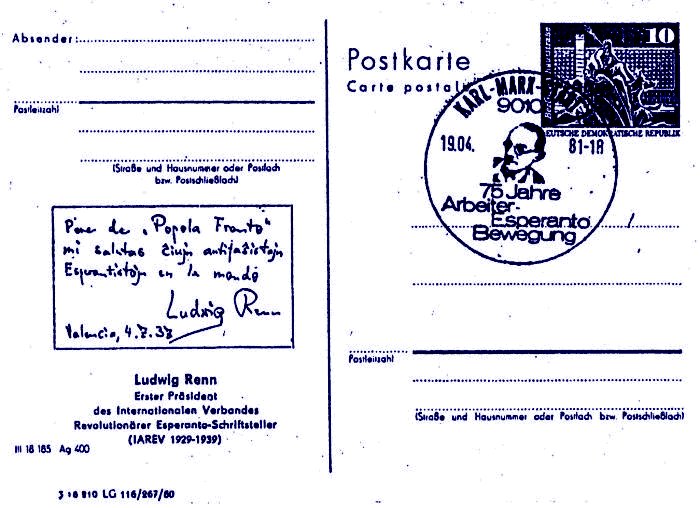 Absender:
Postleitzahl
(Straße und Hausnummer oder Postfach
bzw. Postschließfach)
Pere de „Popola Fronto“
mi salutas ĉiujn antifaŝistojn
Esperantistojn en la mondo
Ludwig Renn
Valencia, 4.7.37
Ludwig Renn
Erster Präsident
des Internationalen Verbandes
Revolutionärer Esperanto-Schriftsteller
(IAREV 1929-1939)
III 18 185 Ag 400
3 16 210 LG 116/267/80
Postkarte
Carte postale
10
DEUTSCHE DEMOKRATISCHE REPUBLIK
KARL-MARX-STADT
9010
19.04.
81-18
75 Jahre
Arbeiter-
Esperanto
Bewegung
Postleitzahl
(Straße und Hausnummer oder Postfach bzw. Postschließfach)